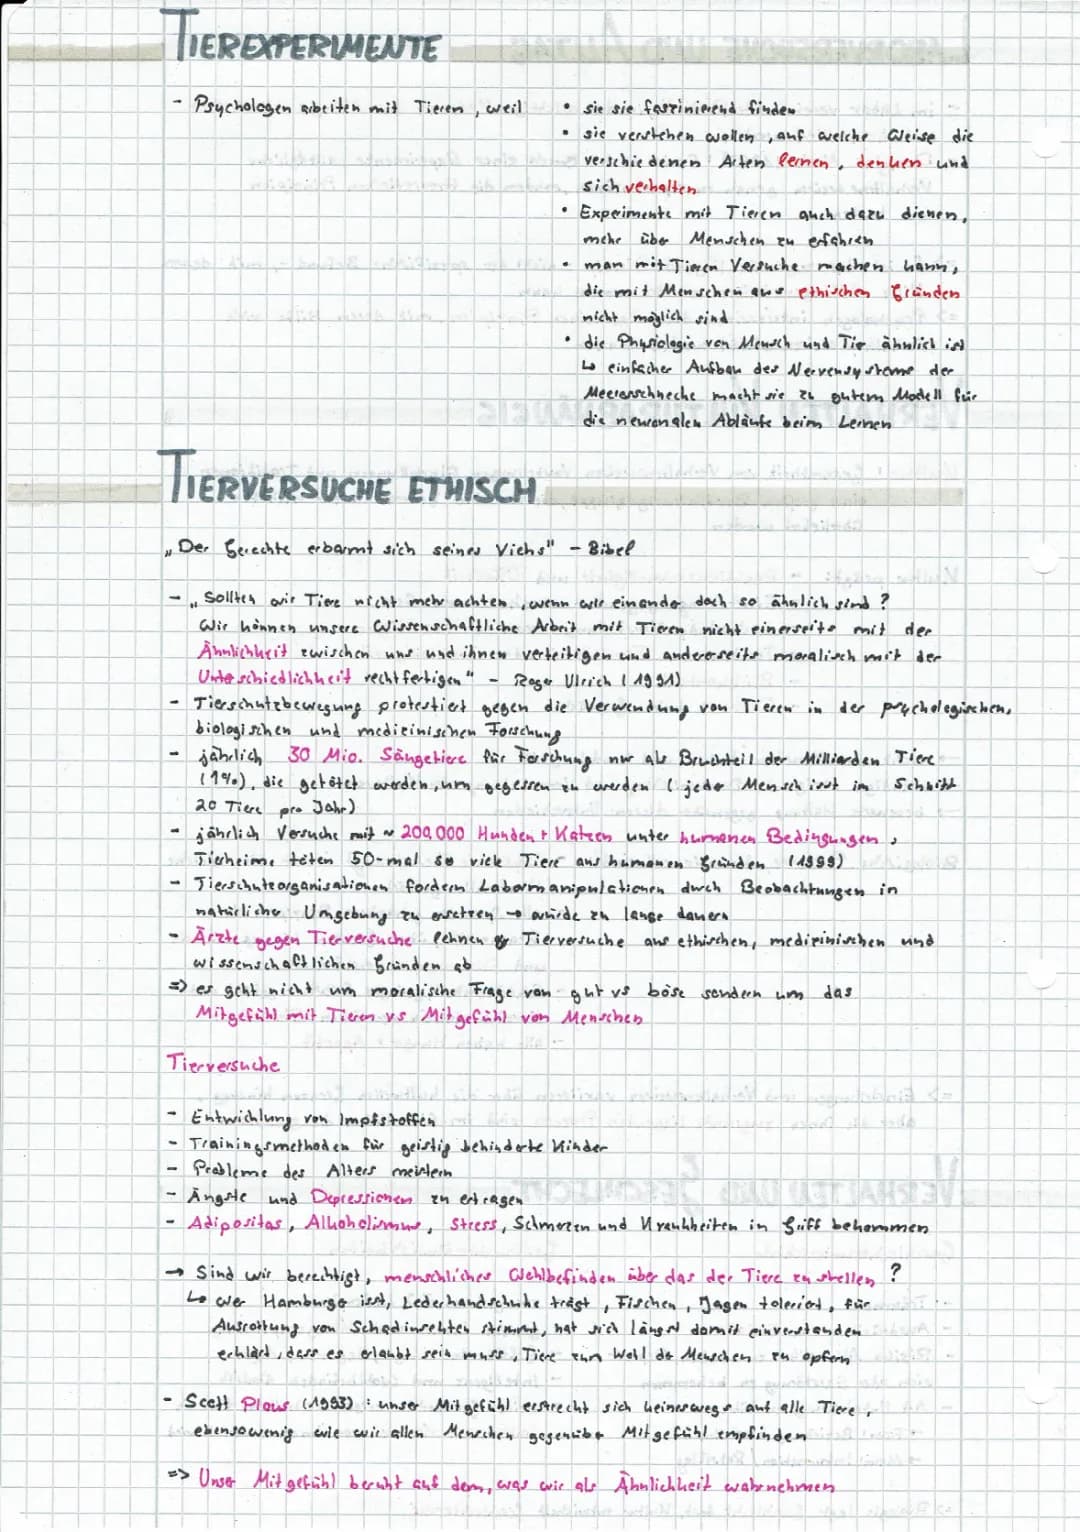 TIEREXPERIMENTE
- Psychologen arbeiten mit Tieren, weil
• sie sie faszinierend finden
• sie verstehen wollen, auf welche Weise die
verschiedenen Arten lernen, denken und
sich verhalten
• Experimente mit Tieren auch dazu dienen,
mehr über Menschen zu erfahren
• man mit Tieren Versuche machen kann,
die mit Menschen aus ethischen Gründen
nicht möglich sind
• die Physiologie von Mensch und Tier ähnlich ist
↳ einfacher Aufbau des Nervensystems der
Meeresschnecke macht sie zu gutem Modell für
die neuronalen Abläufe beim Lernen
TIERVERSUCHE ETHISCH
„Der Gerechte erbarmt sich seines Viehs" - Bibel
- „Sollten wir Tiere nicht mehr achten, wenn wir einander doch so ähnlich sind?
Wir können unsere Wissenschaftliche Arbeit mit Tieren nicht einerseits mit der
Ähnlichkeit zwischen uns und ihnen verteitigen und andererseits moralisch mit der
Unterschiedlichkeit rechtfertigen" - Roger Ulrich (1991)
- Tierschutzbewegung protestiert gegen die Verwendung von Tieren in der psychologischen,
biologischen und medizinischen Forschung
- jährlich 30 Mio. Säugetiere für Forschung nur als Bruchteil der Milliarden Tiere
(1%), die getötet werden, um gegessen zu werden (jeder Mensch isst im Schnitt
20 Tiere pro Jahr)
- jährlich Versuche mit ~ 200.000 Hunden + Katzen unter humanen Bedingungen,
Tierheime töten 50-mal so viele Tiere aus humanen Gründen (1999)
- Tierschutzorganisationen fordern Labormanipulationen durch Beobachtungen in
natürlicher Umgebung zu ersetzen → würde zu lange dauern
- Ärzte gegen Tierversuche lehnen Tierversuche aus ethischen, medizinischen und
wissenschaftlichen Gründen ab
=> es geht nicht um moralische Frage von gut vs böse sondern um das
Mitgefühl mit Tieren vs Mitgefühl von Menschen
Tierversuche
- Entwicklung von Impfstoffen
- Trainingsmethoden für geistig behinderte Kinder
- Probleme des Alters meistern
- Ängste und Depressionen zu ertragen
- Adipositas, Alkoholismus, Stress, Schmerzen und Krankheiten in Griff bekommen
→ Sind wir berechtigt, menschliches Wohlbefinden über das der Tiere zu stellen?
↳ wer Hamburger isst, Lederhandschuhe trägt, Fischen, Jagen toleriert, für
Ausrottung von Schadinsekten stimmt, hat sich längst damit einverstanden
erklärt, dass es erlaubt sein muss, Tiere zum Wohl der Menschen zu opfern
- Scott Plous (1993): unser Mitgefühl erstrecht sich keineswegs auf alle Tiere,
ebensowenig wie wir allen Menschen gegenüber Mitgefühl empfinden
=> Unser Mitgefühl beruht auf dem, was wir als Ähnlichkeit wahrnehmen